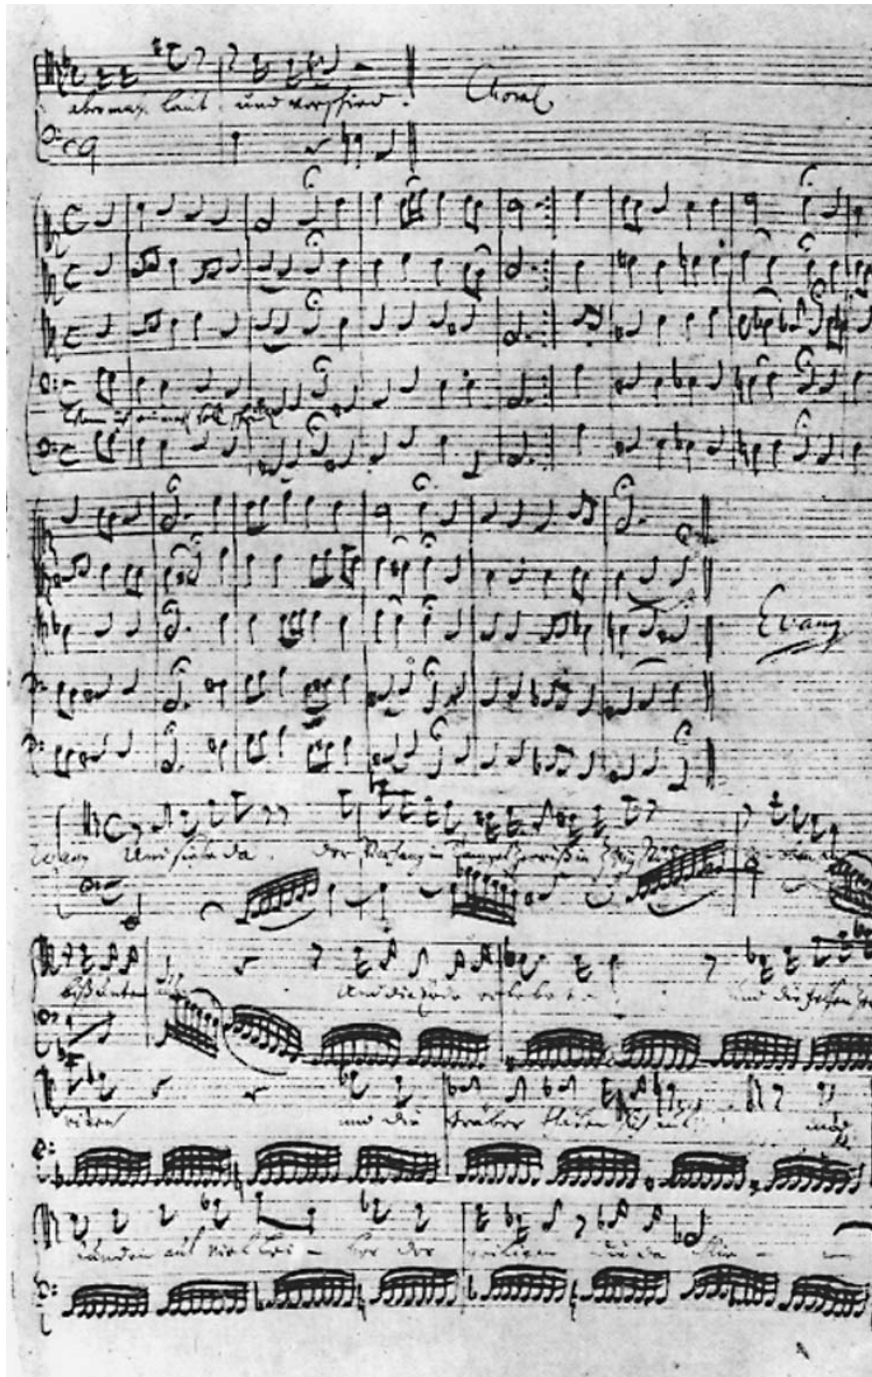 abermal laut und verschied.
Choral
Wenn ich einmal soll scheiden
Evang
Evang Und siehe da, der Vorhang im Tempel zerriß in zwey Stück von oben an
biß unten aus. Und die Erde erbebete und die Felsen zer
rißen und die Gräber thaten sich auf und
stunden auf viel Lei - ber der Heiligen die da schlie -